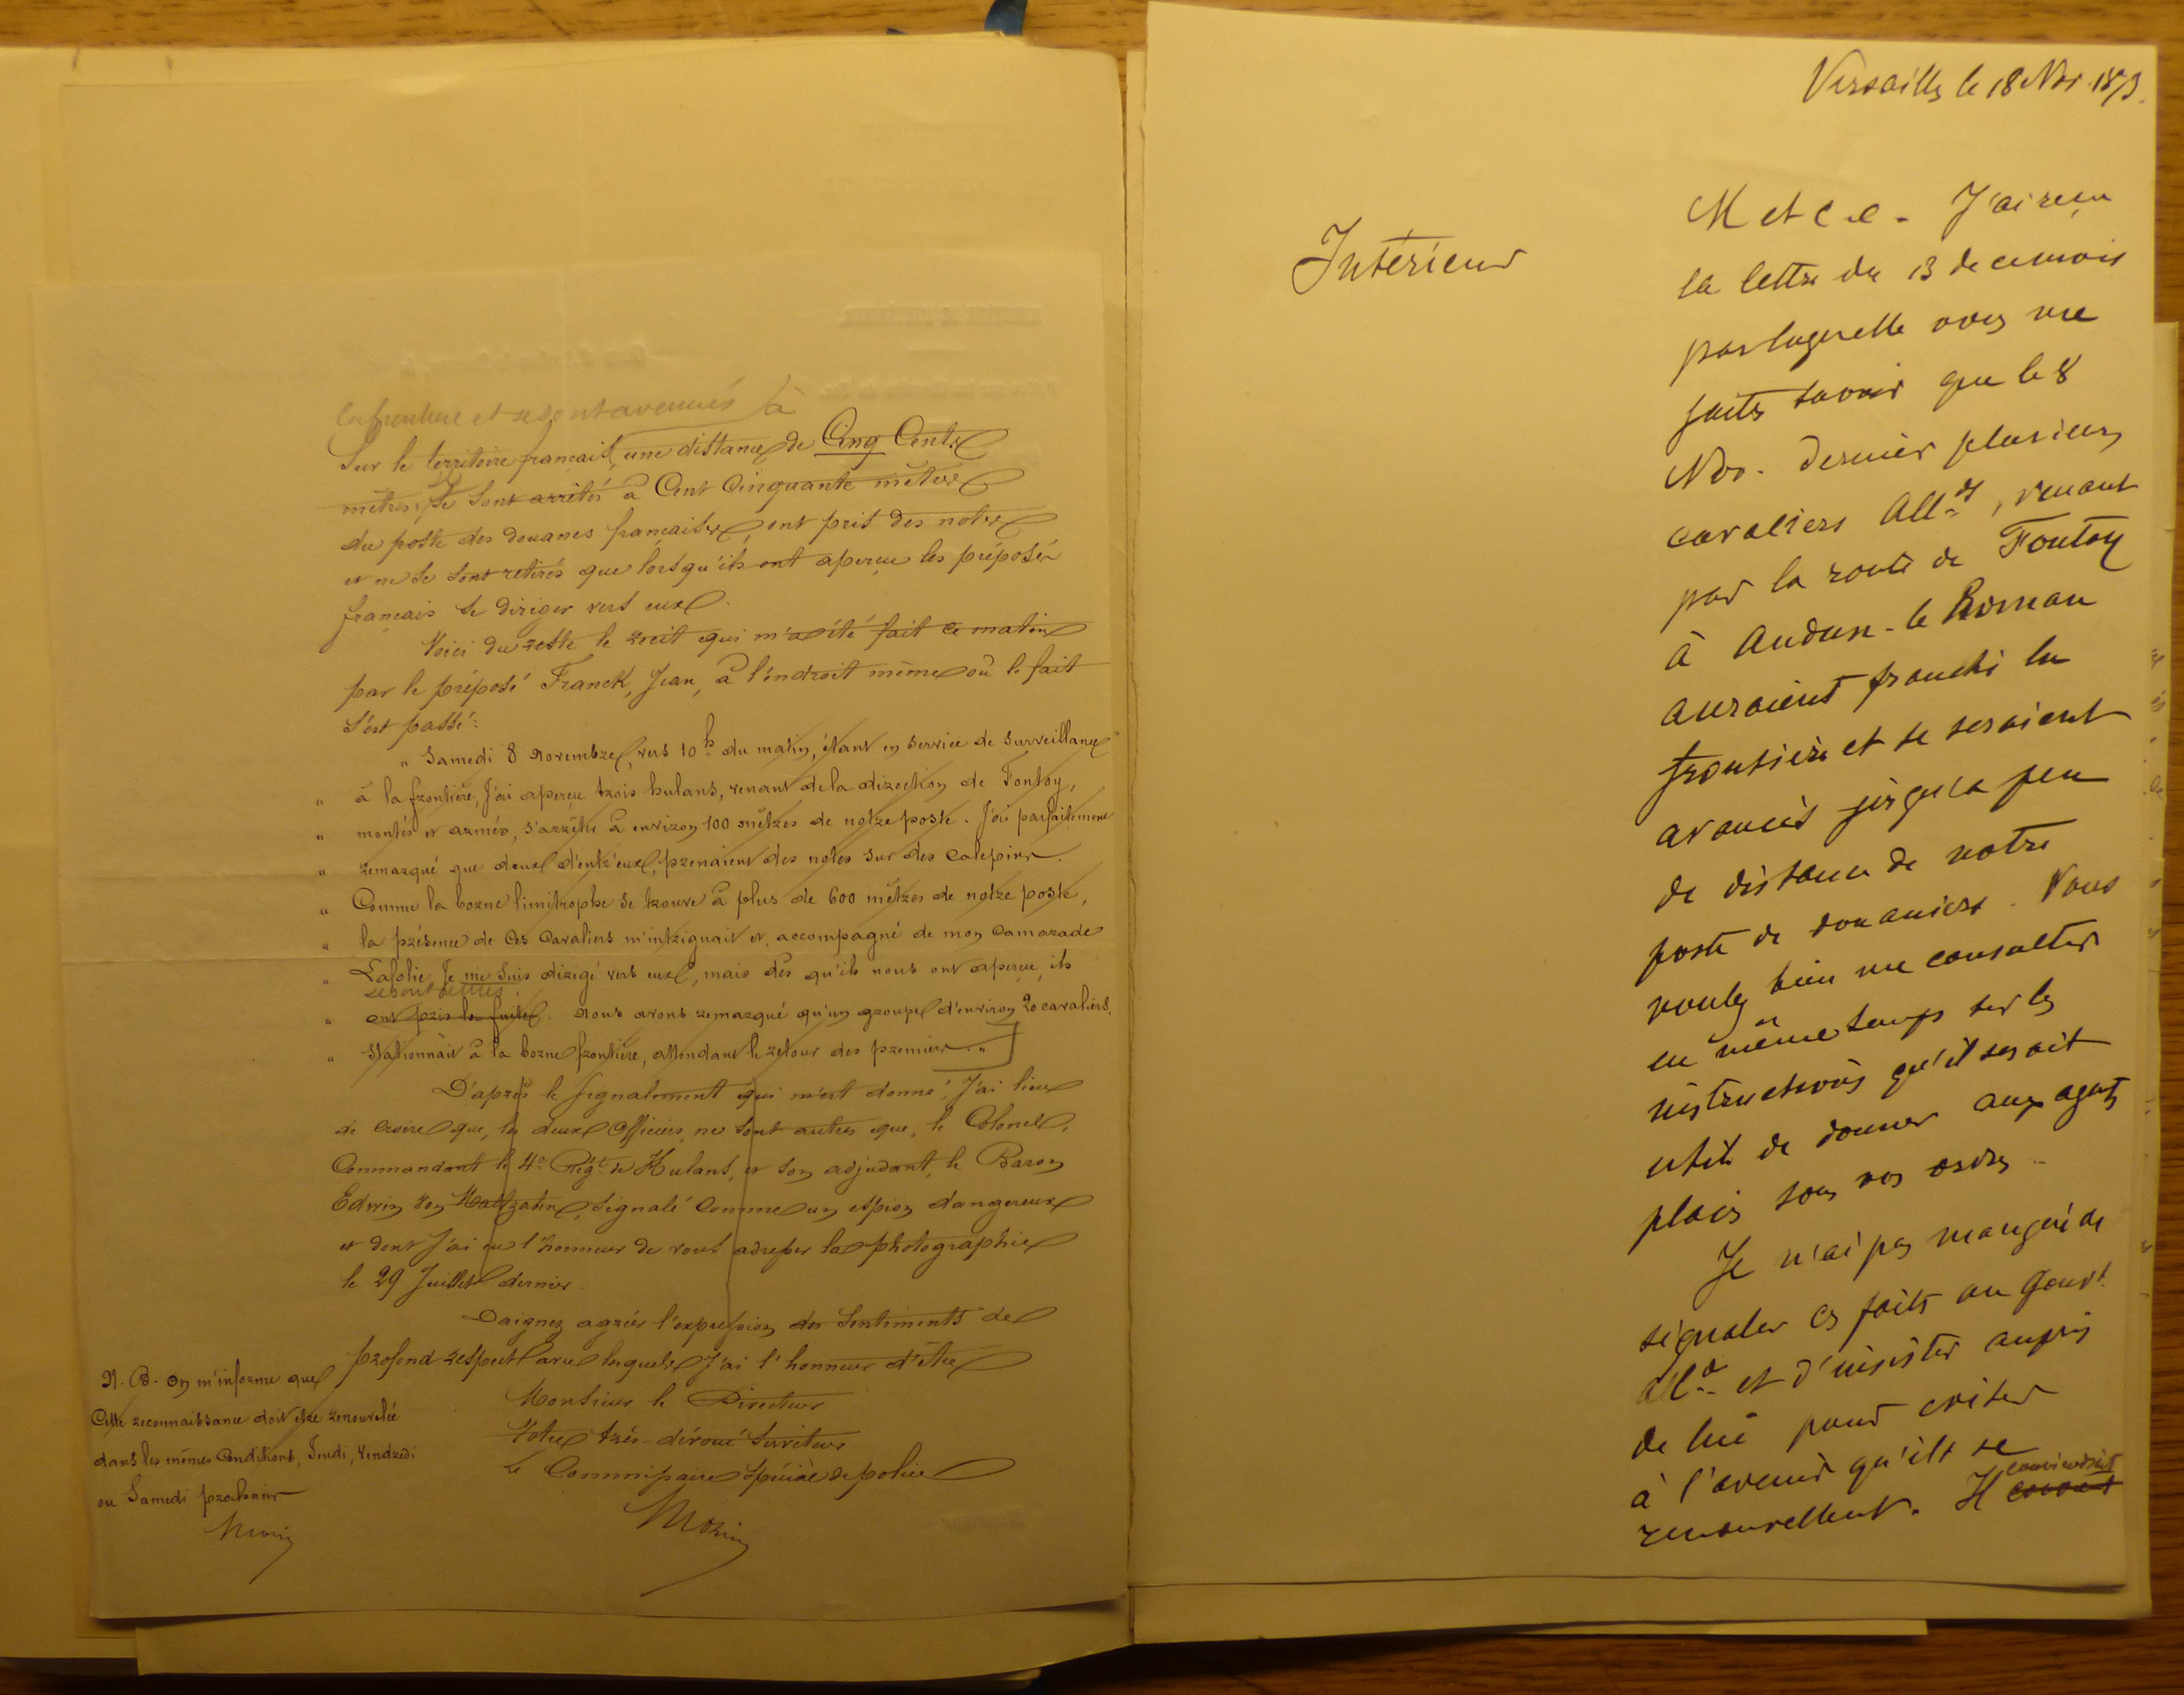 la frontière et se sont avancés à
Sur le territoire français, une distance de Cinq Cents
mètres, se sont arrêtés à Cent Cinquante mètres
du poste des douanes françaises, ont pris des notes
et ne se sont retirés que lorsqu'ils ont aperçu les préposés
français se diriger vers eux.
Voici du reste le récit qui m'a été fait ce matin
par le préposé Franck, Jean, à l'endroit même où le fait
s'est passé:
" Samedi 8 novembre, vers 10h du matin, étant en service de surveillance
" à la frontière, j'ai aperçu trois hulans, venant de la direction de Fontoy,
" montés et armés, s'arrêter à environ 100 mètres de notre poste. J'ai parfaitement
" remarqué que deux d'entr'eux, prenaient des notes sur des calepins.
" Comme la borne limitrophe se trouve à plus de 600 mètres de notre poste,
" la présence de ces cavaliers m'intriguait et, accompagné de mon camarade
" Lafolie, je me suis dirigé vers eux, mais dès qu'ils nous ont aperçu, ils
se sont retirés.
" ont pris la fuite. Nous avons remarqué qu'un groupe d'environ 20 cavaliers,
" stationnait à la borne frontière, attendant le retour des premiers. "
D'après le signalement qui m'est donné, j'ai lieu
de croire que, les deux officiers, ne sont autres que, le Colonel,
Commandant le 4e Régt de Hulans, et son adjudant, le Baron
Edwin von, signalé comme un espion dangereux
et dont j'ai eu l'honneur de vous adresser la photographie
le 29 Juillet dernier.
Daignez agréer l'expression des sentiments de
profond respect avec lesquels j'ai l'honneur d'être
Monsieur le Directeur
Votre très-dévoué Serviteur
Le Commissaire spécial de police
Morin
N. B. On m'informe que
Cette reconnaissance doit être renouvelée
dans les mêmes conditions, Jeudi, Vendredi
ou Samedi prochains
Morin
Versailles le 18 Nov. 1873.
Intérieur
M et C e - J'ai reçu
la lettre du 13 de ce mois
par laquelle vous me
faites savoir que le 8
Nov. dernier plusieurs
cavaliers Allds, venant
par la route de Fontoy
à Audun-le Roman
auraient franchi la
frontière et se seraient
avancés jusqu'à peu
de distance de notre
poste de douaniers. Vous
voulez bien me consulter
en même temps sur les
instructions qu'il serait
utile de donner aux agents
placés sous vos ordres.
Je n'ai pas manqué de
signaler ces faits au Gouvt
alld et d'insister auprès
de lui pour éviter
à l'avenir qu'ils se
renouvellent. Il conviendrait